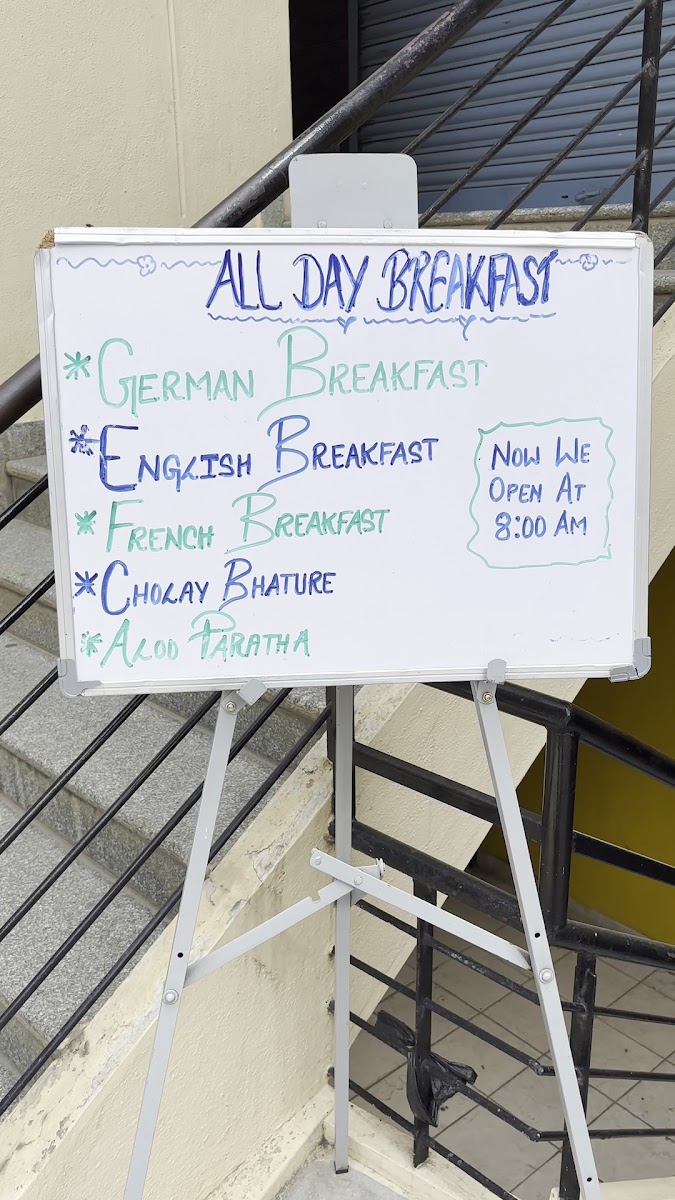 ALL DAY BREAKFAST
* GERMAN BREAKFAST
* ENGLISH BREAKFAST
* FRENCH BREAKFAST
* CHOLAY BHATURE
* ALOO PARATHA
NOW WE
OPEN AT
8:00 AM